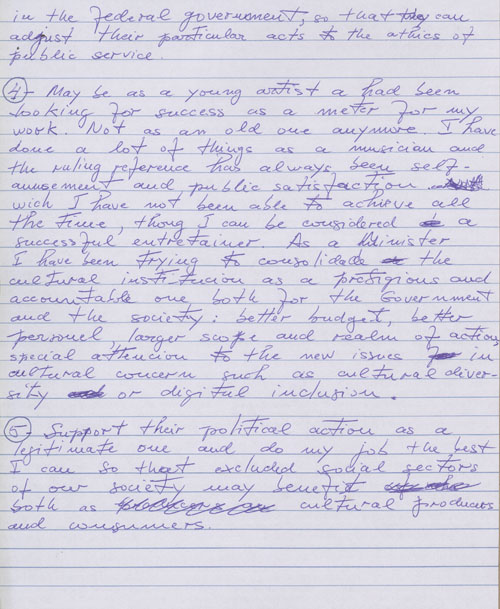 in the federal government, so that they can
adjust their particular acts to the athics of
public service.
4- May be as a young artist a had been
looking for success as a meter for my
work. Not as an old one anymore. I have
done a lot of things as a musician and
the ruling reference has always been self-
amusement and public satisfaction
wich I have not been able to achieve all
the time, thong I can be considered a
successful entretainer. As a Minister
I have been trying to consolidade the
cultural institucion as a prodigious and
accountable one both for the Government
and the society: better budget, better
personel, larger scope and realm of action,
special attencion to the new issues in
cultural concern such as cultural diver-
sity or digital inclusion.
5- Support their political action as a
legitimate one and do my job the best
I can so that excluded social sectors
of our society may benefit
both as cultural producers
and consumers.